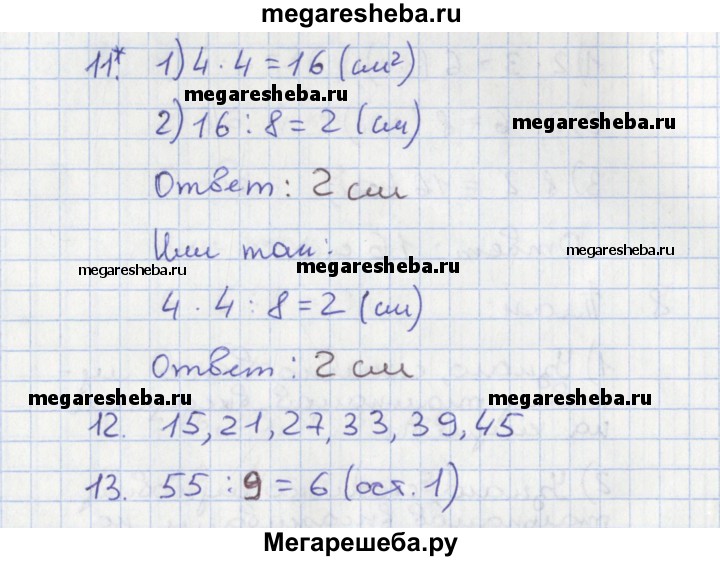 megaresheba.ru
11*. 1) 4 · 4 = 16 (см²)
megaresheba.ru
2) 16 : 8 = 2 (см)
megaresheba.ru
Ответ: 2 см
Или так:
megaresheba.ru
megaresheba.ru
megaresheba.ru
4 · 4 : 8 = 2 (см)
Ответ: 2 см
megaresheba.ru
megaresheba.ru
12. 15, 21, 27, 33, 39, 45
13. 55 : 9 = 6 (ост. 1)
Мегарешеба.ру